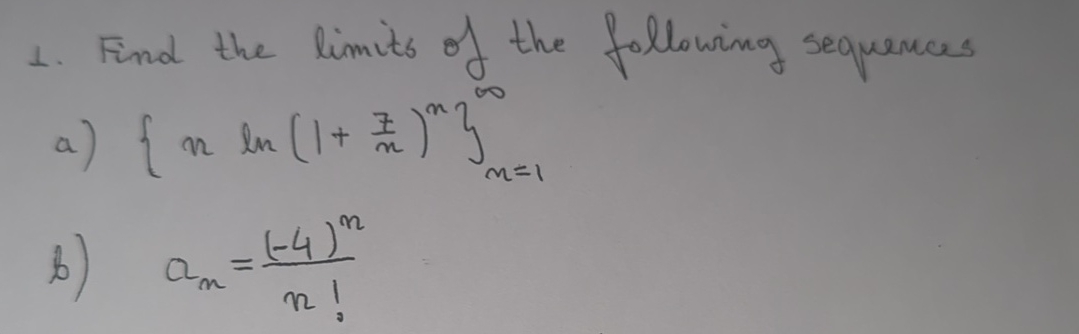 1. Find the limits of the following sequences
a) { n ln (1 + 7/n)^n }_{n=1}^∞
b) a_n = (-4)^n / n!